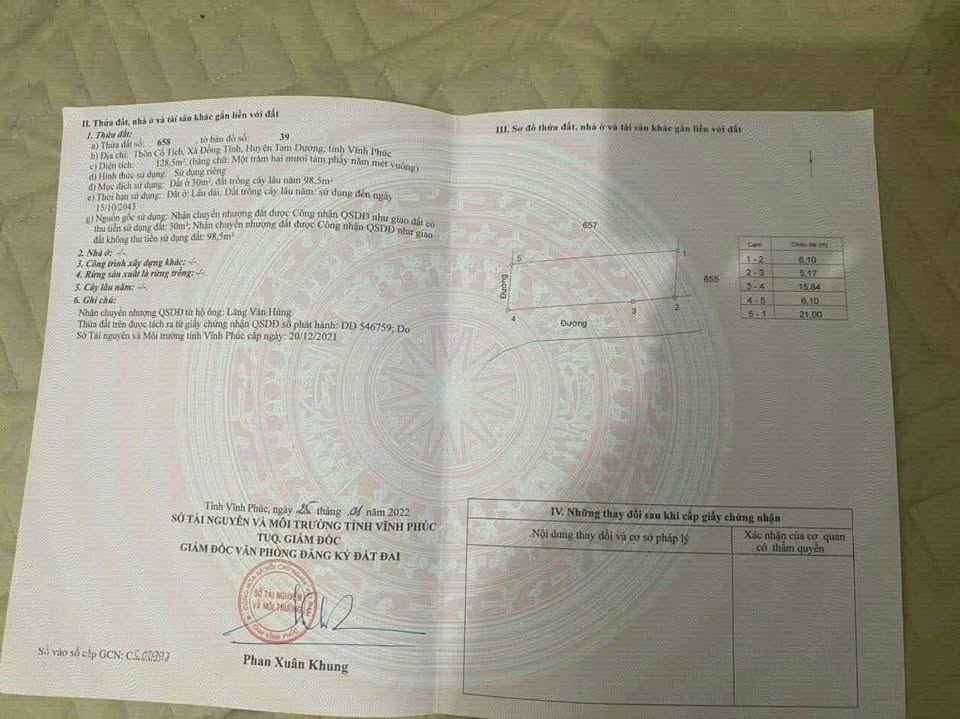 II. Thửa đất, nhà ở và tài sản khác gắn liền với đất
1. Thửa đất:
a) Thửa đất số: 658 , tờ bảo đồ số: 39
b) Địa chỉ: Thôn Cổ Tích, Xã Đồng Tĩnh, Huyện Tam Dương, tỉnh Vĩnh Phúc
c) Diện tích: 128,5m², (bằng chữ: Một trăm hai mươi tám phẩy năm mét vuông)
d) Hình thức sử dụng: Sử dụng riêng
đ) Mục đích sử dụng: Đất ở 30m², đất trồng cây lâu năm 98.5m²
e) Thời hạn sử dụng: Đất ở: Lâu dài; Đất trồng cây lâu năm: sử dụng đến ngày
15/10/2043
g) Nguồn gốc sử dụng: Nhận chuyển nhượng đất được Công nhận QSDĐ như giao đất có
thu tiền sử dụng đất: 30m²; Nhận chuyển nhượng đất được Công nhận QSDĐ như giao
đất không thu tiền sử dụng đất: 98,5m²
2. Nhà ở: -/-.
3. Công trình xây dựng khác: -/-.
4. Rừng sản xuất là rừng trồng: -/-.
5. Cây lâu năm: -/-.
6. Ghi chú:
Nhận chuyển nhượng QSDĐ từ hộ ông: Lăng Văn Hùng
Thửa đất trên được tách ra từ giấy chứng nhận QSDĐ số phát hành: DD 546759; Do
Sở Tài nguyên và Môi trường tỉnh Vĩnh Phúc cấp ngày: 20/12/2021
Tỉnh Vĩnh Phúc, ngày 25 tháng 01 năm 2022
SỞ TÀI NGUYÊN VÀ MÔI TRƯỜNG TỈNH VĨNH PHÚC
TUQ. GIÁM ĐỐC
GIÁM ĐỐC VĂN PHÒNG ĐĂNG KÝ ĐẤT ĐAI
SỞ TÀI NGUYÊN
VÀ MÔI TRƯỜNG
TỈNH VĨNH PHÚC
Phan Xuân Khung
Số vào sổ cấp GCN: CS00997
III. Sơ đồ thửa đất, nhà ở và tài sản khác gắn liền với đất
657
5
1
Đường
655
4
3
2
Đường
Cạnh Chiều dài (m)
1 - 2 6,10
2 - 3 5,17
3 - 4 15,84
4 - 5 6,10
5 - 1 21,00
IV. Những thay đổi sau khi cấp giấy chứng nhận
Nội dung thay đổi và cơ sở pháp lý
Xác nhận của cơ quan
có thẩm quyền